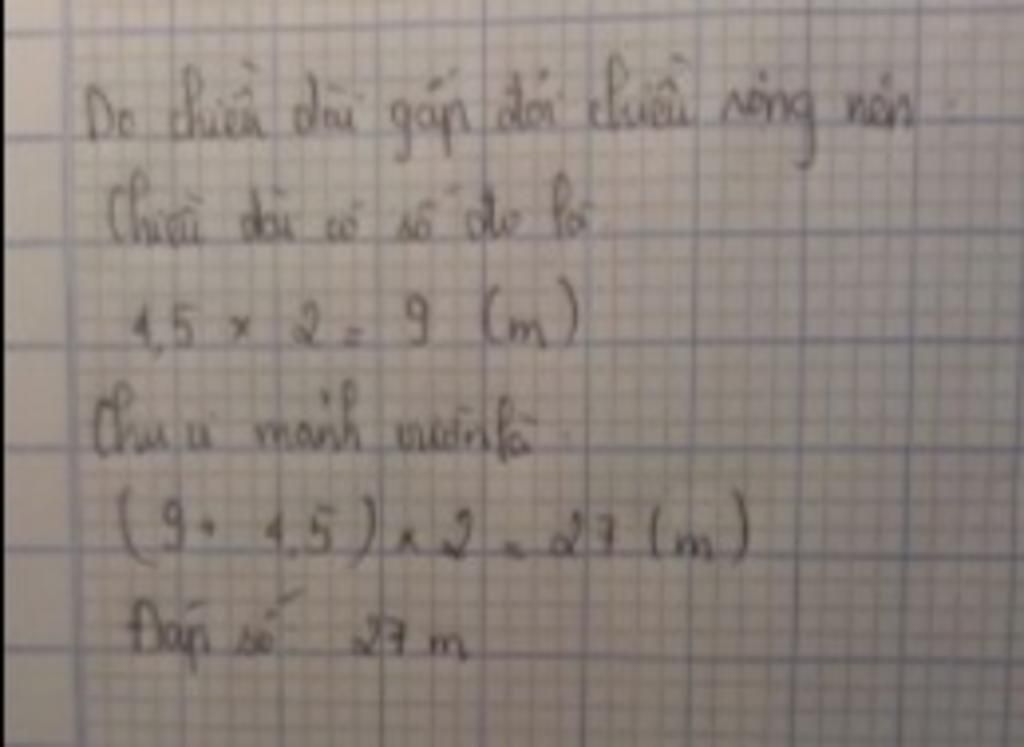 Do chiều dài gấp đôi chiều rộng nên
Chiều dài có số đo là
4,5 × 2 = 9 (m)
Chu vi mảnh vườn là
(9 + 4,5) × 2 = 27 (m)
Đáp số 27 m